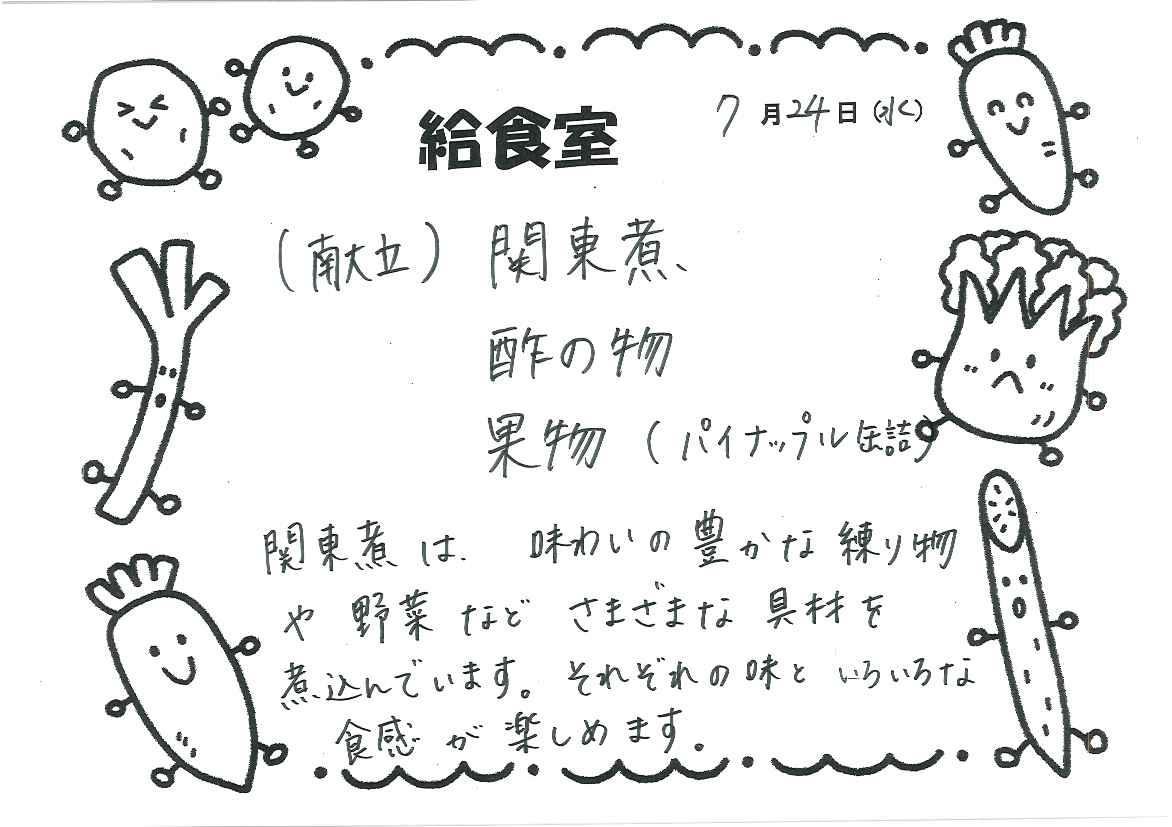 給食室
7月24日(水)
(献立) 関東煮、
酢の物
果物 (パイナップル缶詰)
関東煮は、味わいの豊かな練り物
や野菜などさまざまな具材を
煮込んでいます。それぞれの味といろいろな
食感が楽しめます。